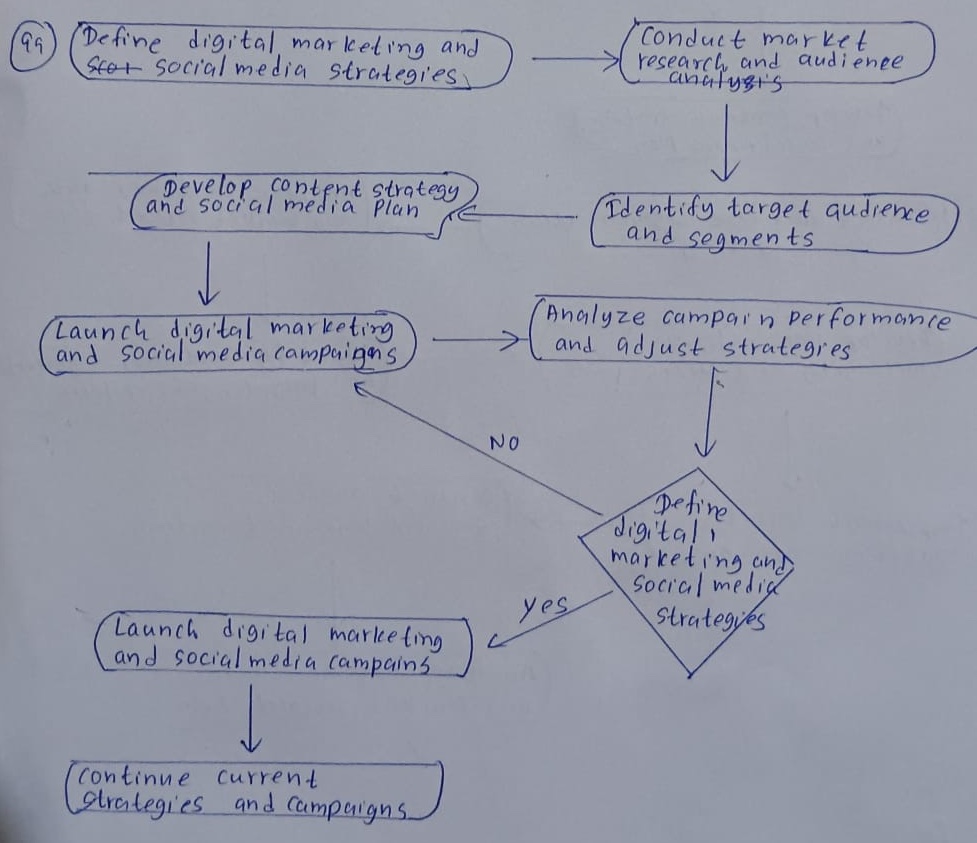 99
Define digital marketing and
social media strategies
Conduct market
research and audience
analysis
Identify target audience
and segments
Develop content strategy
and social media plan
Launch digital marketing
and social media campaigns
Analyze campain performance
and adjust strategies
NO
Define
digital
marketing and
social media
strategies
yes
Launch digital marketing
and social media campains
continue current
strategies and campaigns